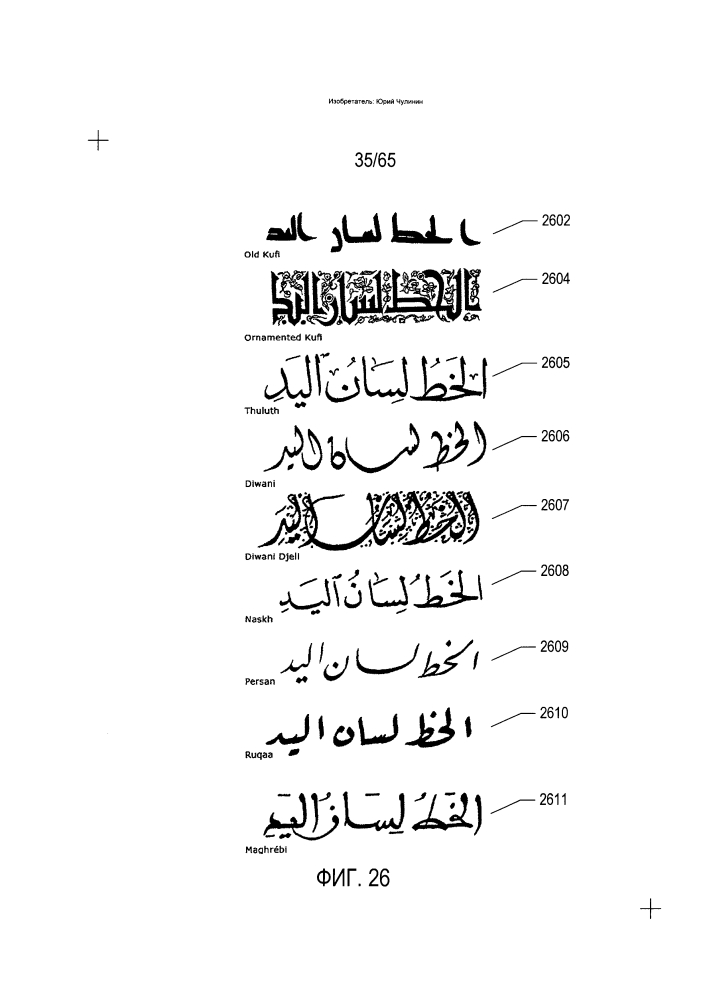 Изобретатель: Юрий Чулинин
35/65
الخط لسان اليد 2602
Old Kufi
الخط لسان اليد 2604
Ornamented Kufi
الخَطُ لِسَانُ اليَدِ 2605
Thuluth
الخط لسان اليد 2606
Diwani
الخط لسان اليد 2607
Diwani Djeli
الخَطُ لِسَانُ اليَدِ 2608
Naskh
الخط لسان اليد 2609
Persan
الخط لسان اليد 2610
Ruqaa
الخط لسان اليد 2611
Maghrébi
ФИГ. 26